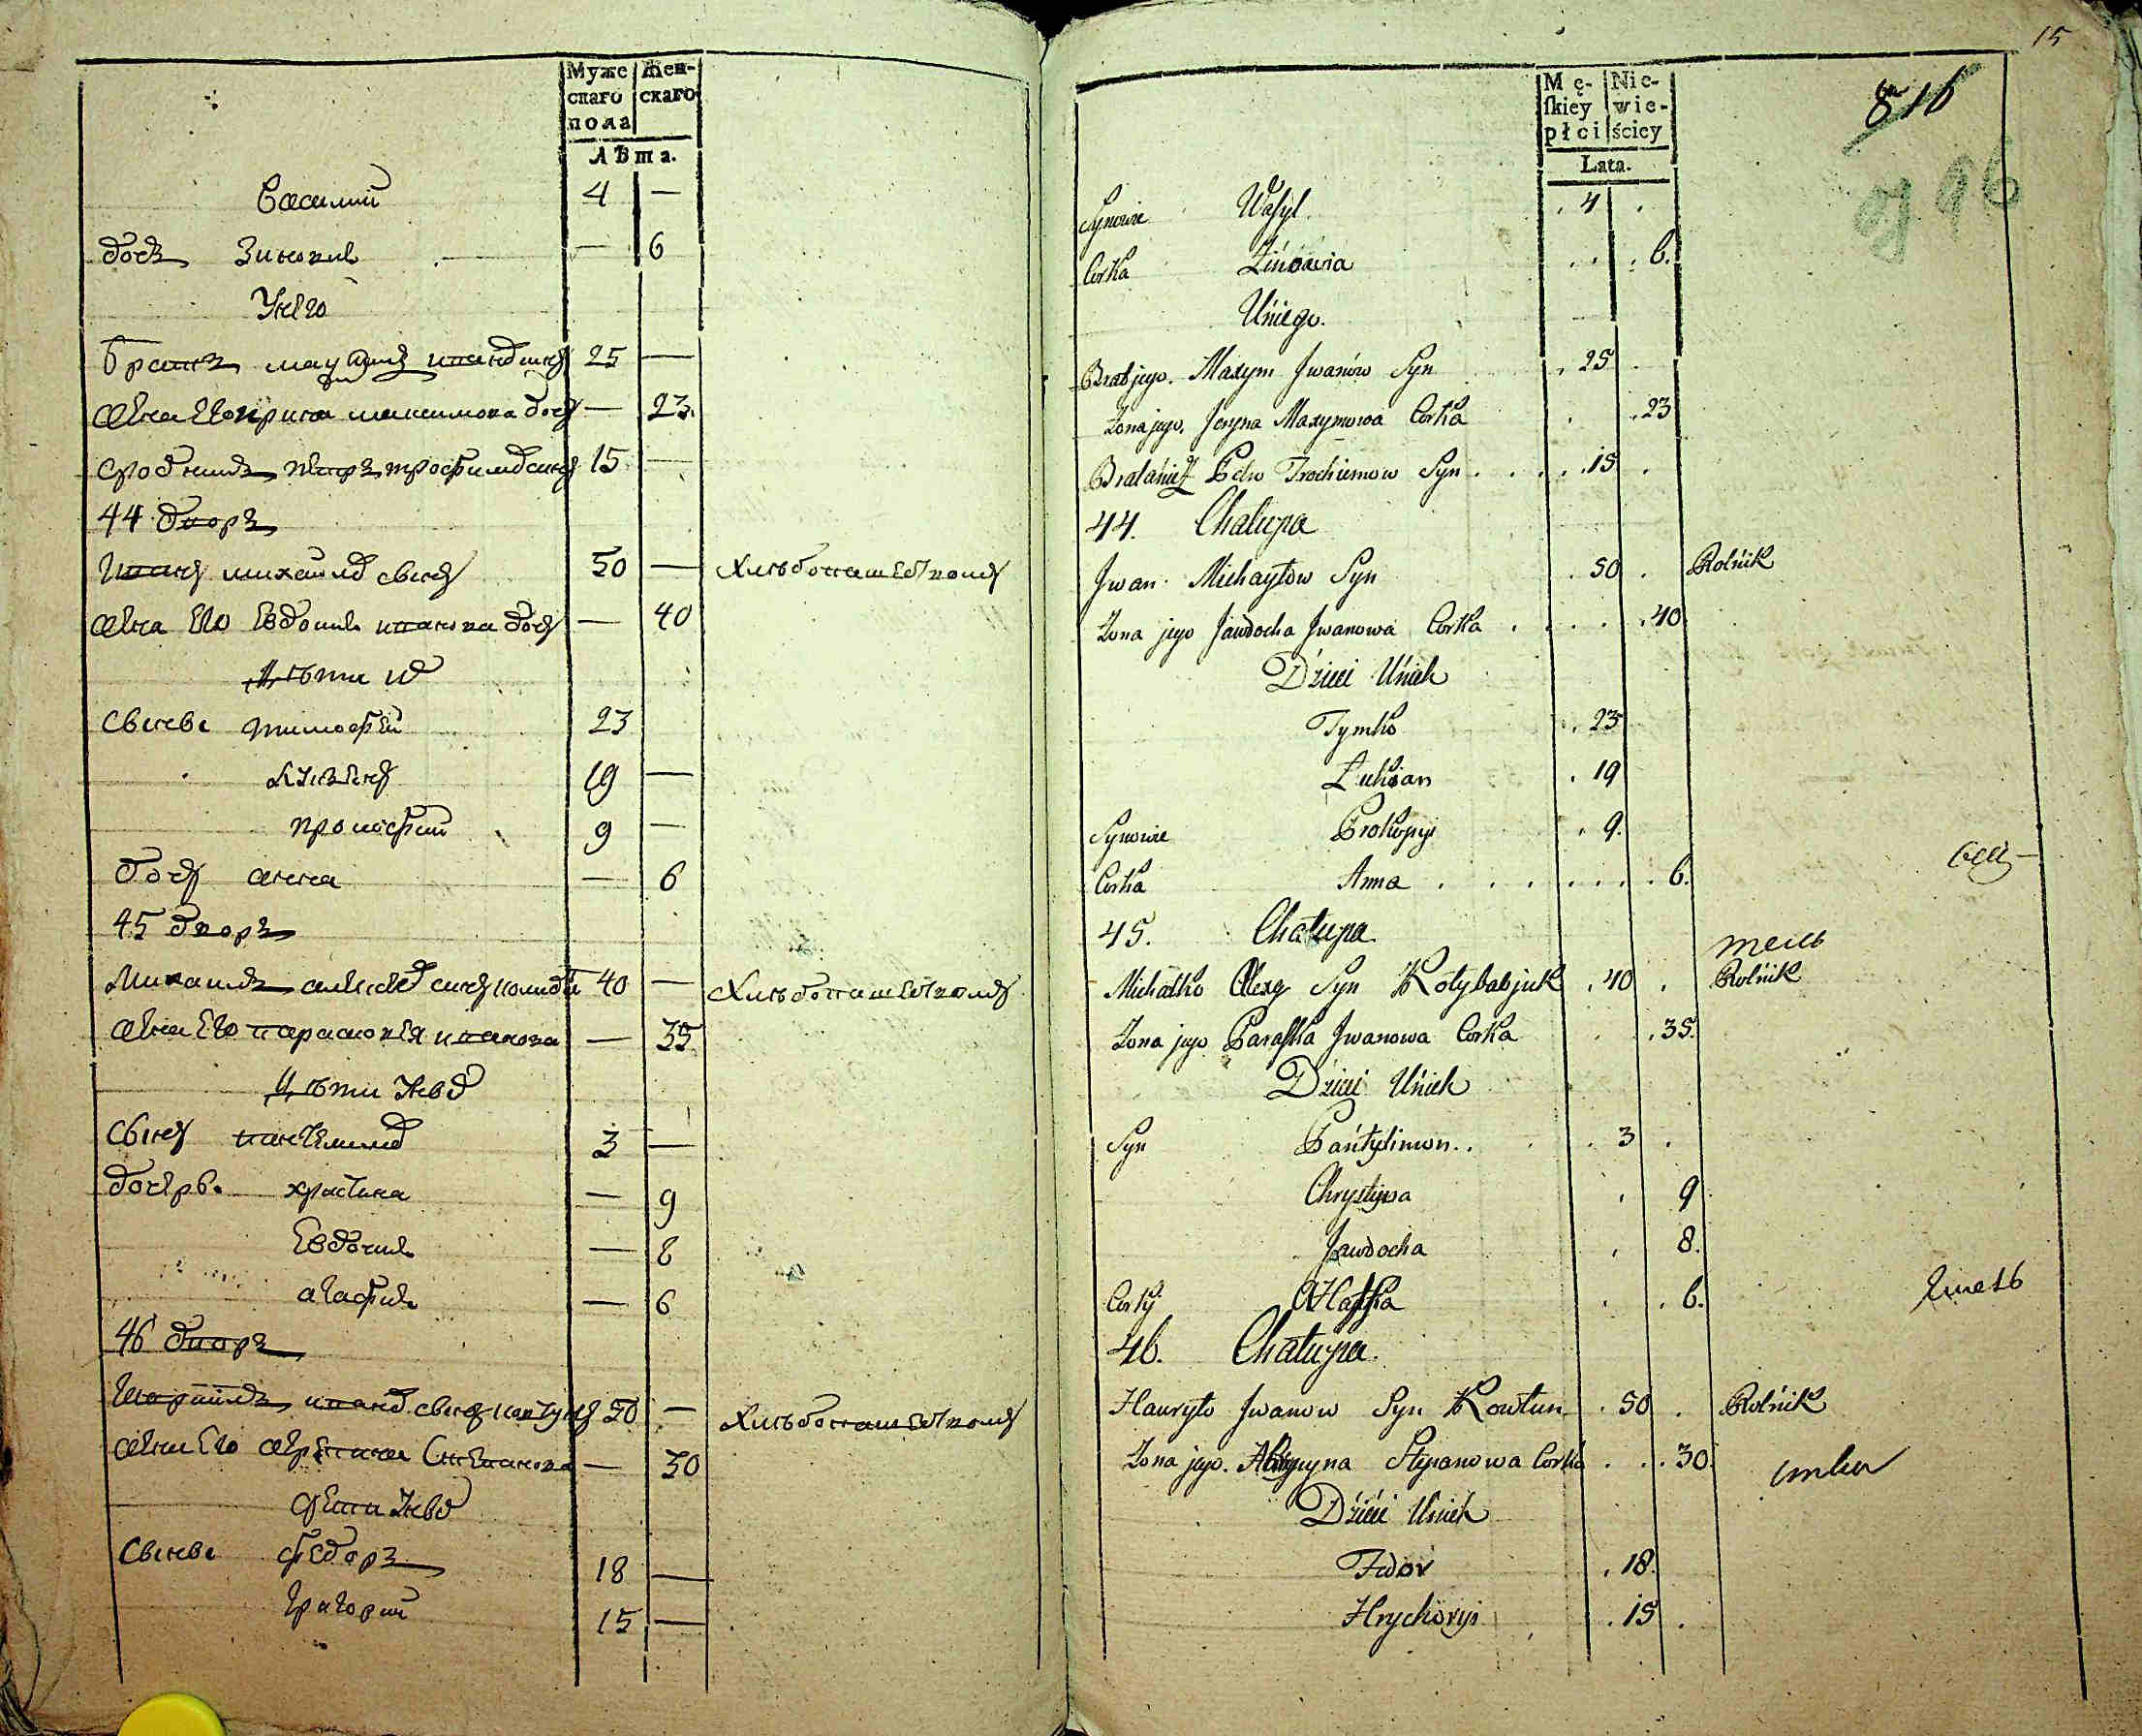 Муже Жен-
скаго скаго
пола
Лѣта.
Василий 4 —
дочь Зиновия — 6
У него
братъ 25 —
жена его Ирина максимова дочь — 23.
сродникъ петръ трофимов сынъ 15 —
44 дворъ
Иванъ михайлов сынъ 50 — хлебопашествомъ
жена его Евдокия иванова дочь — 40
дѣти их
сыновя тимофей 23
лукиянъ 19 —
прокофий 9 —
дочъ анна — 6
45 дворъ
Михаилъ алексеев сынъ 40 — хлебопашествомъ
жена его парасковея иванова — 35
дѣти у них
сынъ пантелимон 3 —
дочери христина — 9
Евдокия — 8
агафия — 6
46 дворъ
Гаврилъ иванов сынъ ковтунъ 50 — хлебопашествомъ
жена его Степанова — 30
дети у них
сыновя федоръ 18 —
григорий 15 —
15
Mę- Nie-
skiey wie-
płci ściey
Lata.
816
96
Synowie Wasyl. . 4 .
Corka Zinowia . . . 6.
Uniego.
Brat jego. Maxym Jwanów Syn . 25 .
Zona jego. Jeryna Maxymowa Corka . . 23
Bratanick Petro Trochiemow Syn . . . . 15 .
44. Chalupa
Jwan Michayłow Syn . 50 . Rolnik
Zona jego Jawdocha Jwanowa Corka . . . . 40
Dzieci Unich
Tymko . 23
Lukian . 19
Synowie Prokopyi . 9.
Corka Anna . . . . . . . . 6.
45. Chałupa.
тель
Michałko Olexy Syn Kotybabjuk . 40 . Rolnik
Zona jego Paraska Jwanowa Corka . . 35.
Dzieci Unich
Syn Pantylimon. . . . 3 .
Chrystyna . 9
Jawdocha . 8.
Corky Hapka . . 6.
46. Chałupa.
Hauryło Jwanow Syn Kowtun . 50 . Rolnik
Zona jego. Stepanowa Corka . . . 30.
Dzieci Unich
Fedor . 18.
Hrychoryi . 15 .